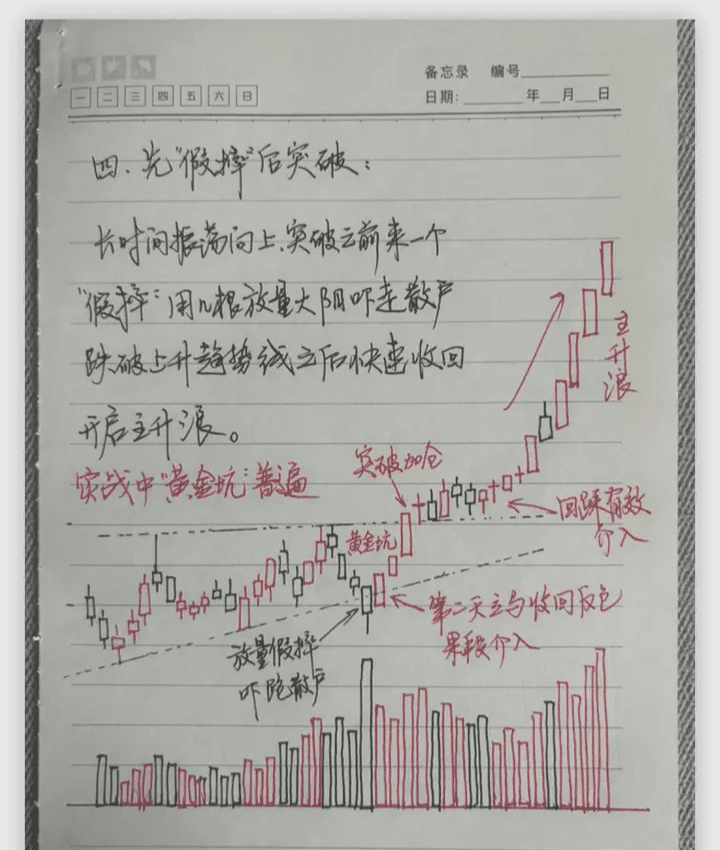 备忘录 编号
一 二 三 四 五 六 日
日期: 年 月 日
四、先"假摔"后突破:
长时间振荡向上、突破之前来一个
"假摔"用几根放量大阴吓走散户
跌破上升趋势线之后快速收回
开启主升浪。
实战中"黄金坑"普遍
主升浪
突破加仓
回踩有效
介入
黄金坑
第二天立马收回反包
果段介入
放量假摔
吓跑散户